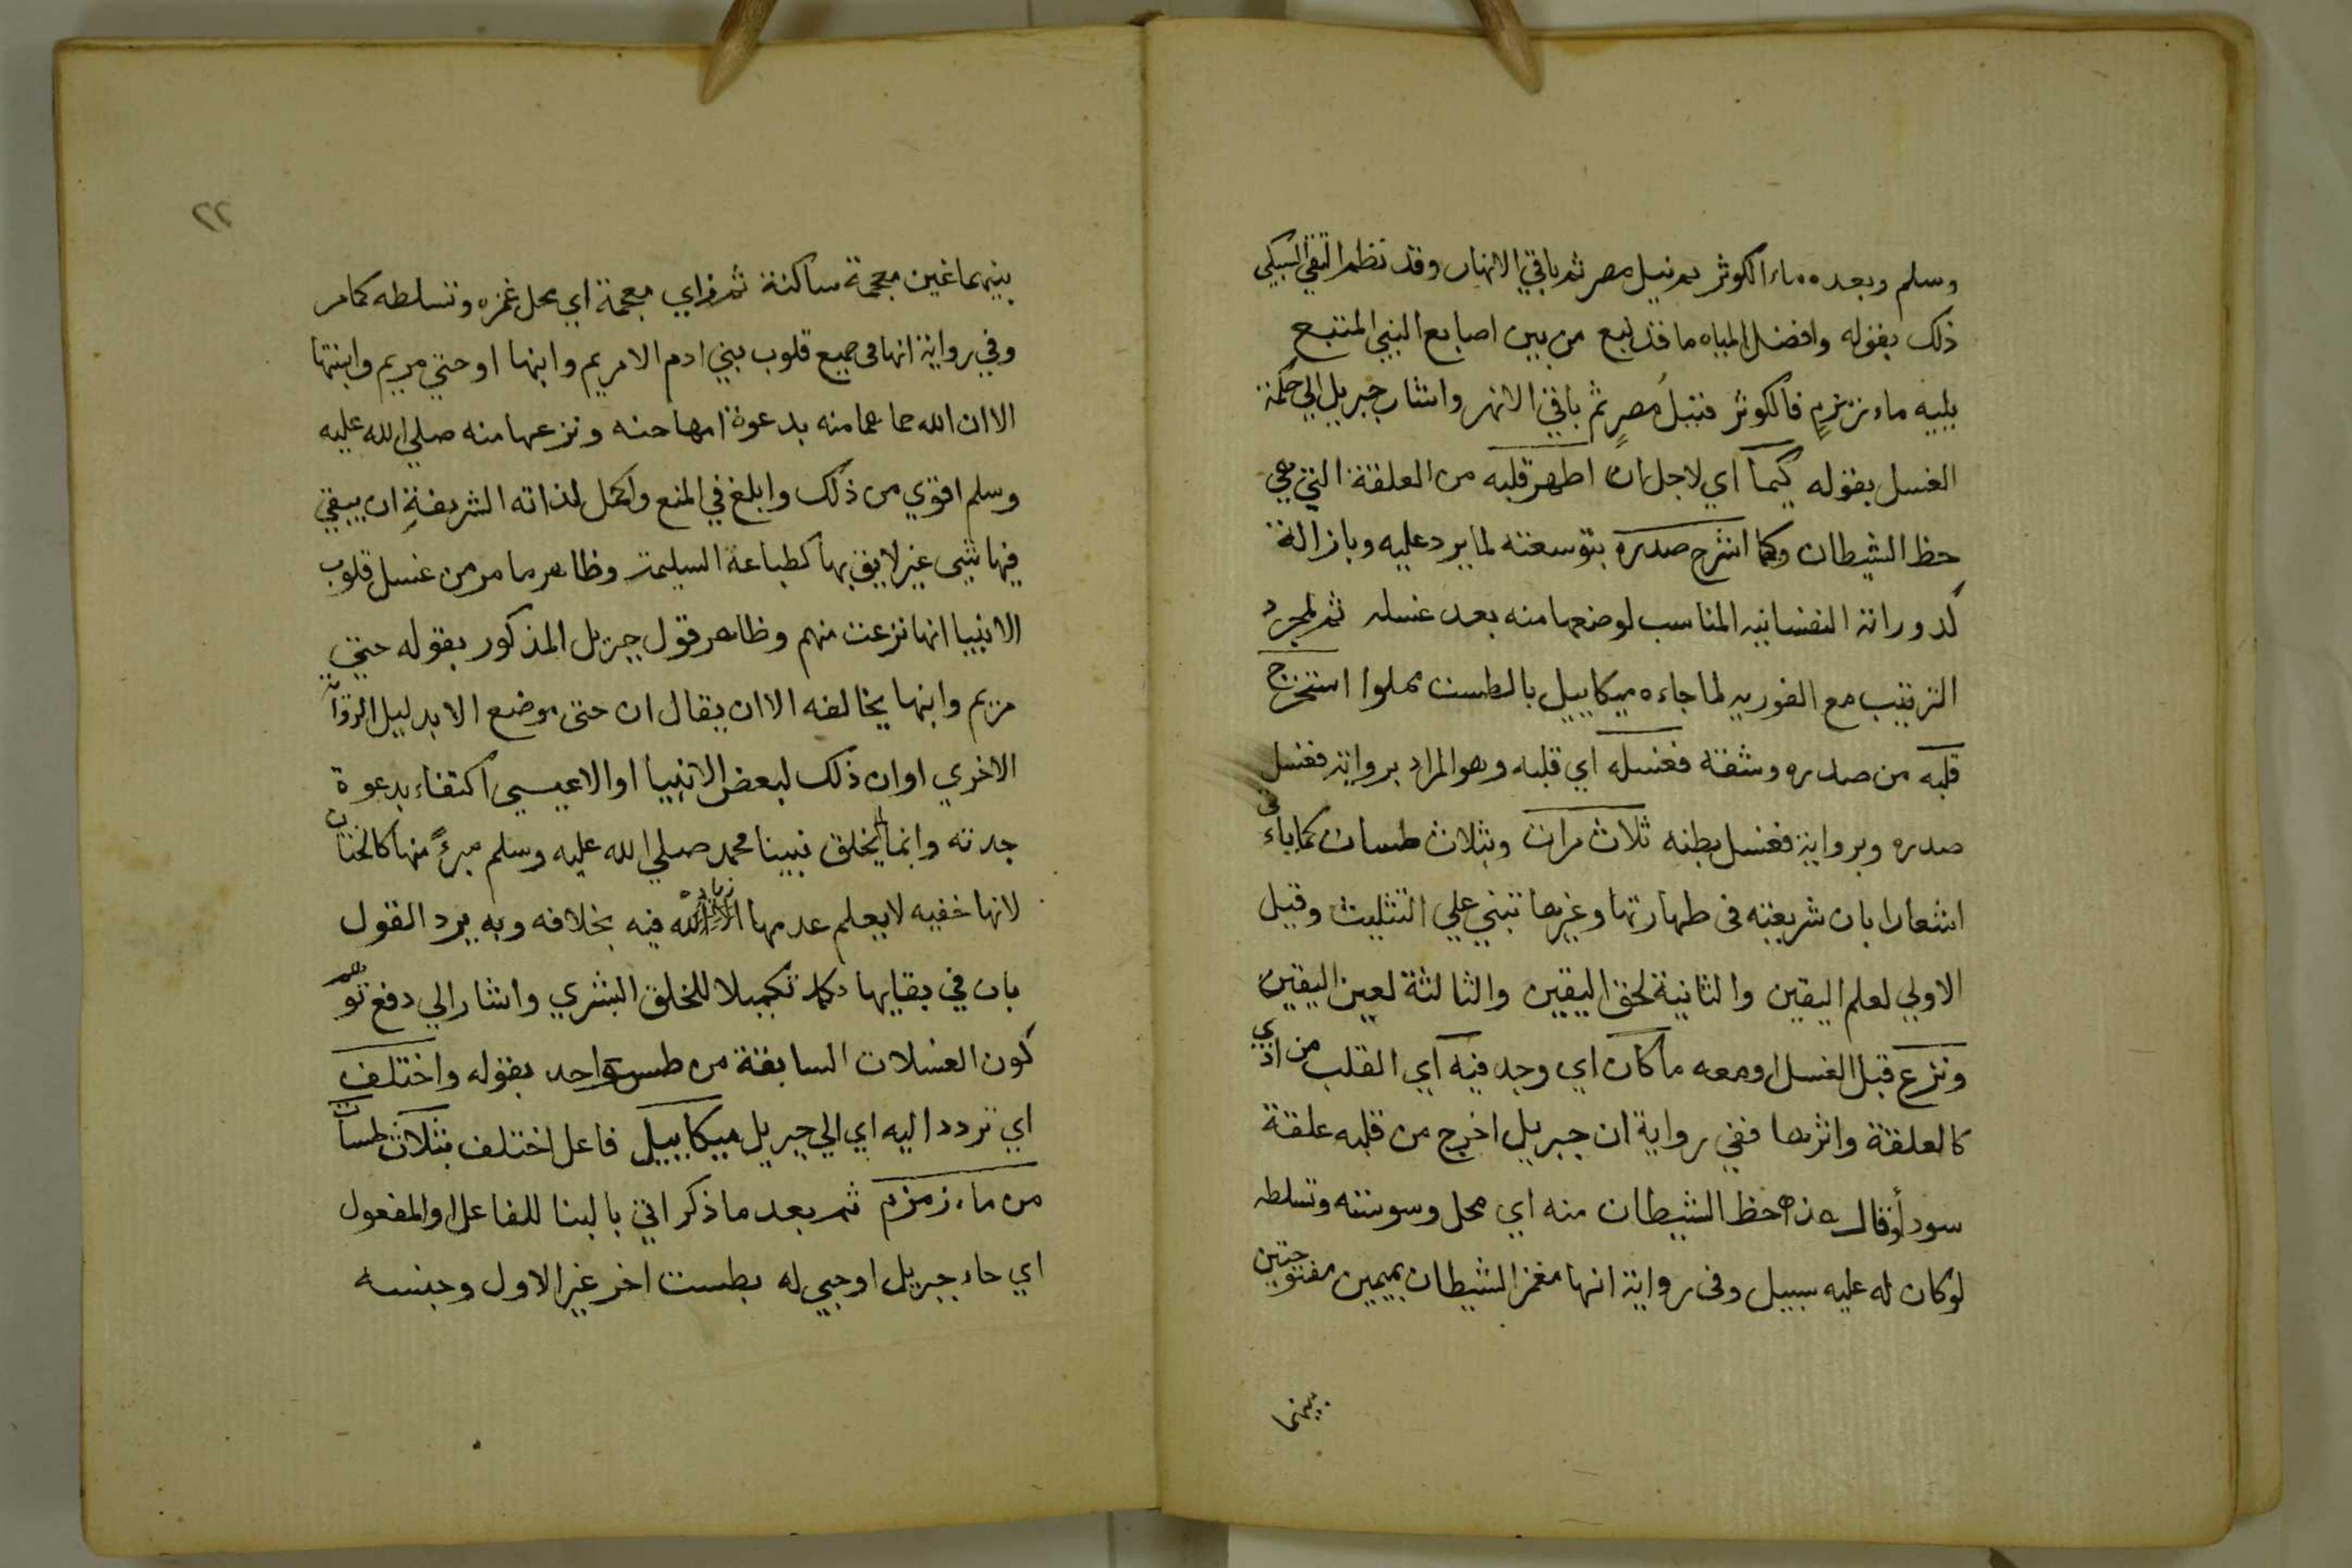 وسلم وبعده ماء الكوثر ثم نيل مصر ثم باقي الانهار وقد نظم التقي السبكي
ذلك بقوله وافضل المياه ما قد نبع من بين اصابع النبي المتبع
يليه ماء زمزم فالكوثر فنيل مصر ثم باقي الانهر واشار جبريل الي حكمة
الغسل بقوله كيما اي لاجل ان اطهر قلبه من العلقة التي هي
حظ الشيطان وكما اشرح صدره بتوسعته لما يرد عليه وبازالة
كدوراته النفسانيه المناسب لوضعها منه بعد غسله ثم لمجرد
الترتيب مع الفوريه لما جاءه ميكاييل بالطست مملوا استخرج
قلبه من صدره وشقه فغسله اي قلبه وهو المراد برواية فغسل
صدره وبرواية فغسل بطنه ثلاث مرات وبثلاث طسات كما ياتي
اشعارا بان شريعته في طهارتها وغيرها تبني علي التثليث وقيل
الاولي لعلم اليقين والثانية لحق اليقين والثالثة لعين اليقين
ونزع قبل الغسل او معه ما كان اي وجد فيه اي القلب من اذي
كالعلقة واثرها ففي رواية ان جبريل اخرج من قلبه علقة
سودا وقال هذه حظ الشيطان منه اي محل وسوسته وتسلطه
لو كان له عليه سبيل وفي رواية انها مغمز الشيطان بميمين مفتوحتين
بينهما
٢٢
بينهما غين معجمة ساكنة ثم زاي معجمة اي محل غمزه وتسلطه كما مر
وفي رواية انها في جميع قلوب بني ادم الا مريم وابنها او حتي مريم وابنتها
الا ان الله حماهما منه بدعوة امها حنه ونزعها منه صلي الله عليه
وسلم اقوي من ذلك وابلغ في المنع واكمل لذاته الشريفة ان يبقي
فيها شي غير لايق بها كطباعة السليمة وظاهر ما مر من غسل قلوب
الانبيا انها نزعت منهم وظاهر قول جبريل المذكور بقوله حتي
مريم وابنها يخالفه الا ان يقال ان حتي موضع الا بدليل الرواية
الاخري او ان ذلك لبعض الانبيا او الا عيسي اكتفاء بدعوة
جدته وانما لم يخلق نبينا محمد صلي الله عليه وسلم مبرءً منها كالختان
لانها خفيه لا يعلم عدمها الا زيادة فيه بخلافه وبه يرد القول
بان في بقايها تكميلا للخلق البشري واشار الي دفع توهم
كون الغسلات السابقة من طس واحد بقوله واختلف
اي تردد اليه اي الي جبريل ميكاييل فاعل اختلف بثلاث طسات
من ماء زمزم ثم بعد ما ذكر اتي بالبنا للفاعل او المفعول
اي جاء جبريل او جي له بطست اخر غير الاول وجنسه